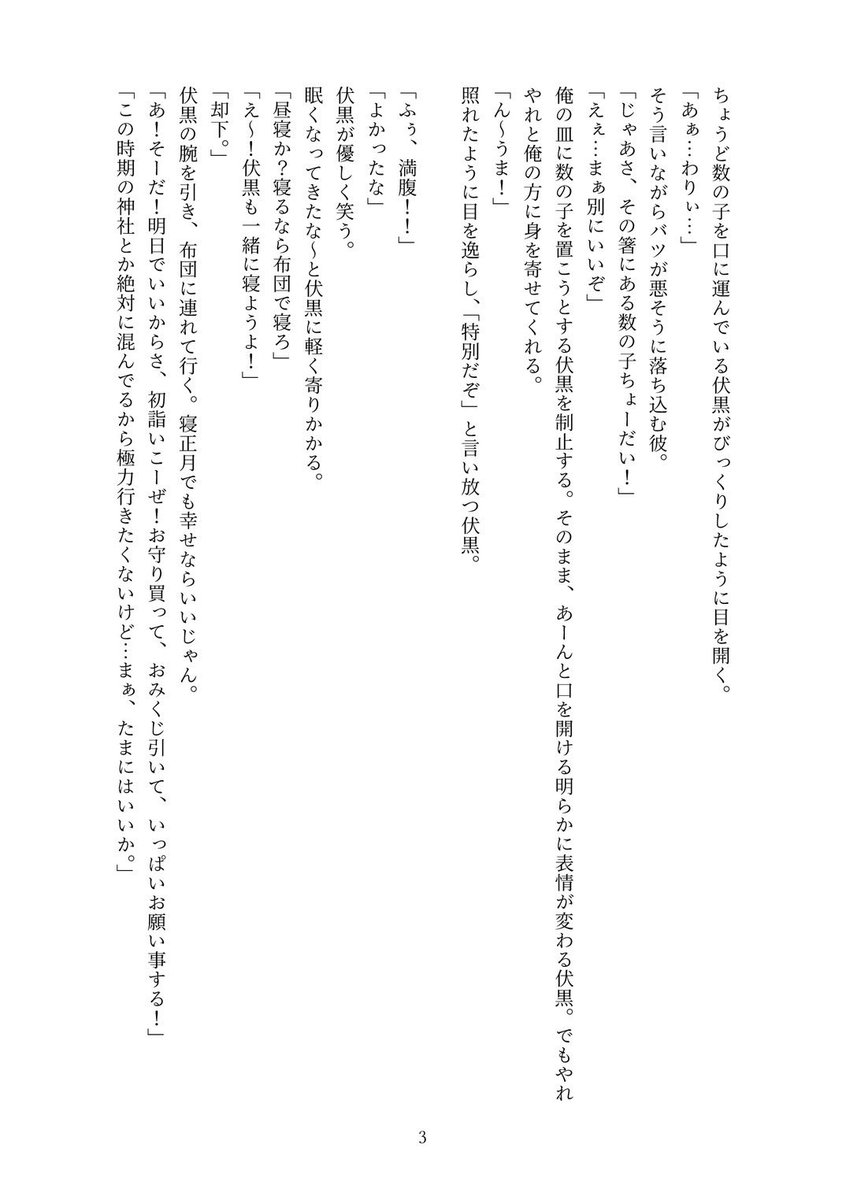 ちょうど数の子を口に運んでいる伏黒がびっくりしたように目を開く。
「あぁ…わりぃ…」
そう言いながらバツが悪そうに落ち込む彼。
「じゃあさ、その箸にある数の子ちょーだい！」
「えぇ…まぁ別にいいぞ」
俺の皿に数の子を置こうとする伏黒を制止する。そのまま、あーんと口を開ける明らかに表情が変わる伏黒。でもやれ
やれと俺の方に身を寄せてくれる。
「ん〜うま！」
照れたように目を逸らし、「特別だぞ」と言い放つ伏黒。
「ふぅ、満腹！！」
「よかったな」
伏黒が優しく笑う。
眠くなってきたな〜と伏黒に軽く寄りかかる。
「昼寝か？寝るなら布団で寝ろ」
「え〜！伏黒も一緒に寝ようよ！」
「却下。」
伏黒の腕を引き、布団に連れて行く。寝正月でも幸せならいいじゃん。
「あ！そーだ！明日でいいからさ、初詣いこーぜ！お守り買って、おみくじ引いて、いっぱいお願い事する！」
「この時期の神社とか絶対に混んでるから極力行きたくないけど…まぁ、たまにはいいか。」
3